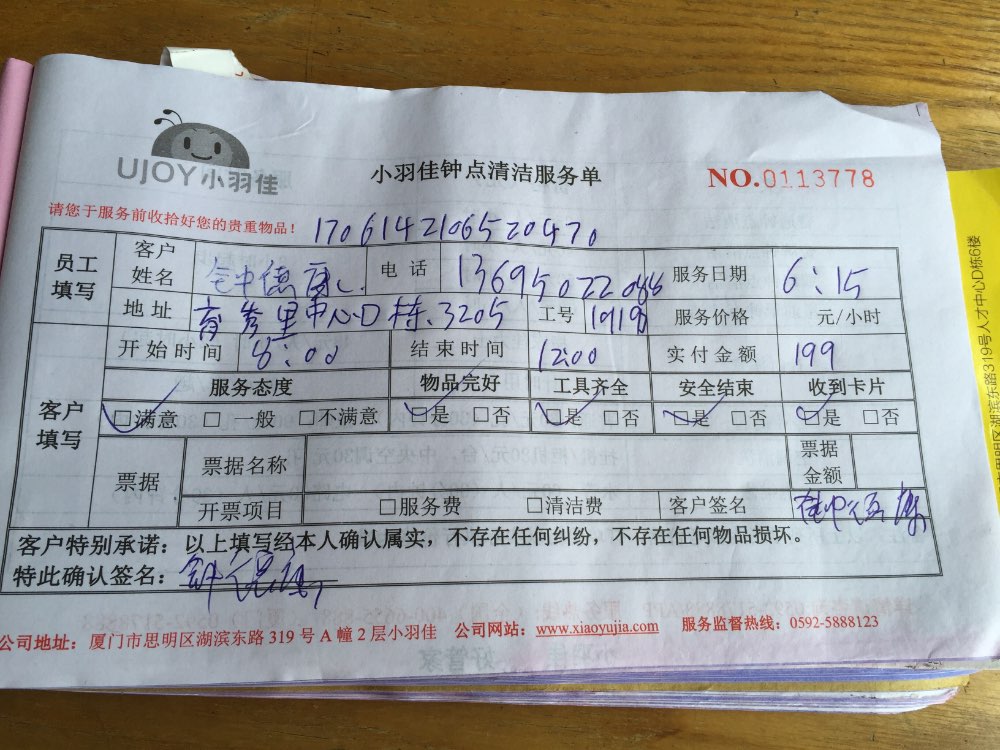 UJOY小羽佳
小羽佳钟点清洁服务单
NO.0113778
请您于服务前收拾好您的贵重物品！
1706142106520470
员工填写
客户姓名 钟德康 电话 13695022088 服务日期 6：15
地址 育秀里中心D栋.3205 工号 1919 服务价格 元/小时
客户填写
开始时间 8：00 结束时间 12:00 实付金额 199
服务态度 物品完好 工具齐全 安全结束 收到卡片
☑满意 □一般 □不满意 ☑是 □否 ☑是 □否 ☑是 □否 ☑是 □否
票据 票据名称 票据金额
开票项目 □服务费 □清洁费 客户签名 钟德康
客户特别承诺：以上填写经本人确认属实，不存在任何纠纷，不存在任何物品损坏。
特此确认签名：钟德康
公司地址：厦门市思明区湖滨东路 319 号 A 幢 2 层小羽佳 公司网站：www.xiaoyujia.com 服务监督热线：0592-5888123
思明区湖滨东路319号人才中心D栋6楼